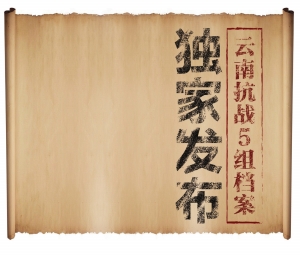 云南抗战5组档案
独家发布